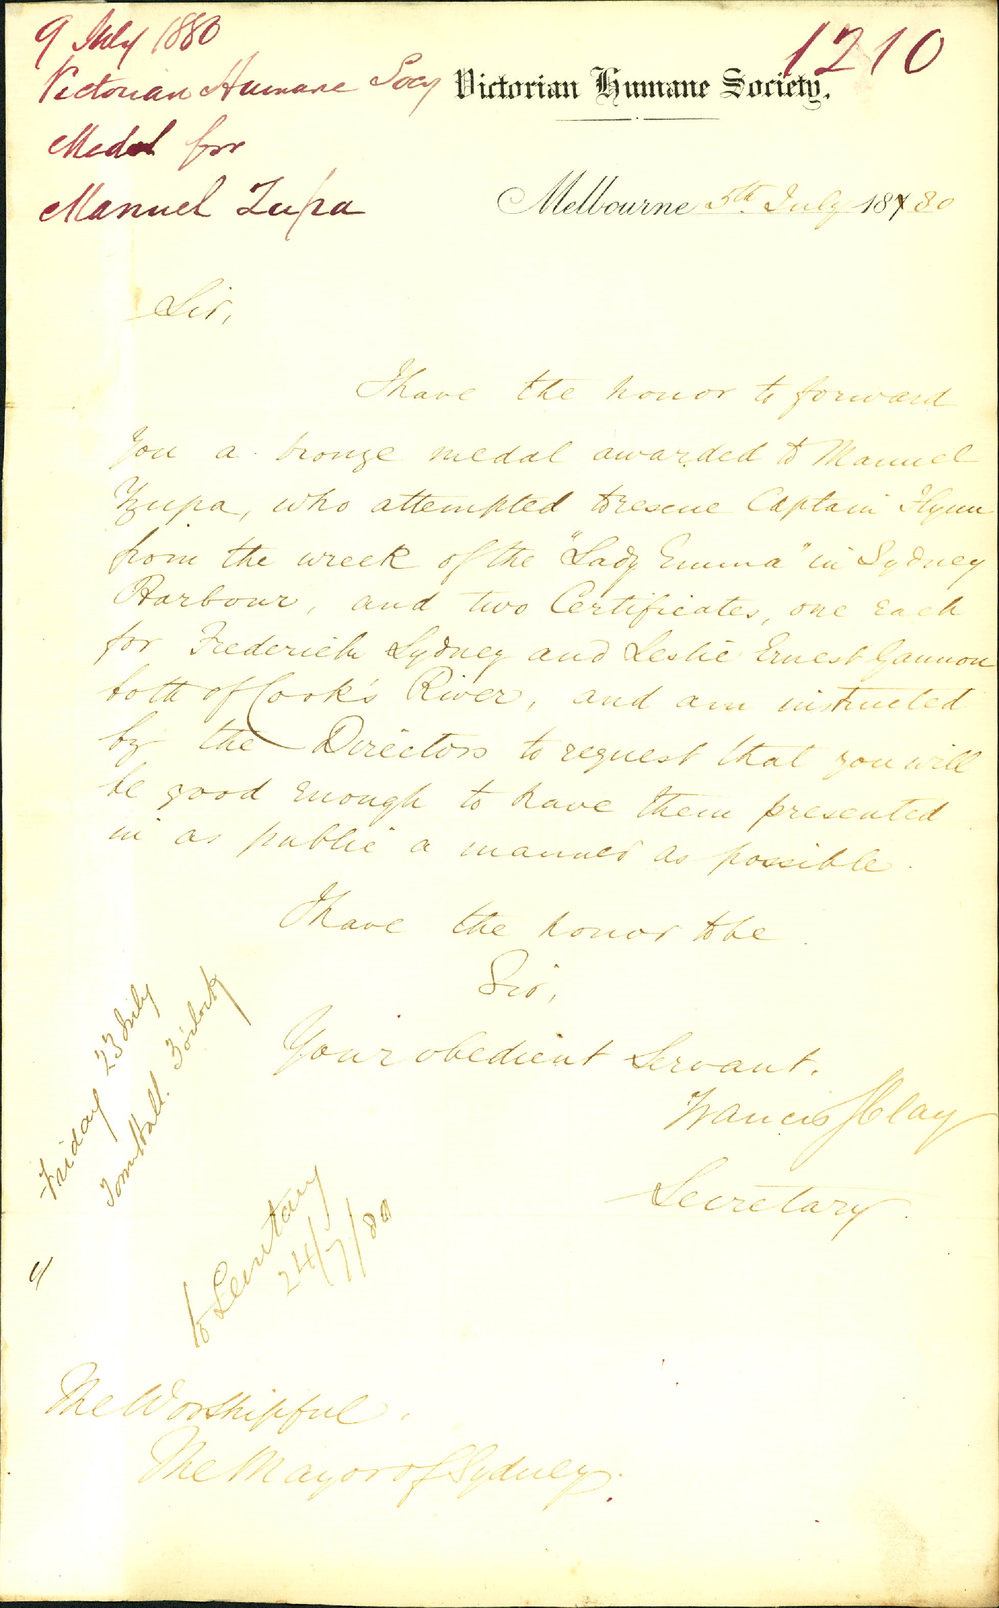 9 July 1880
1210
Victorian Humane Socy
Victorian Humane Society.
Medal for
Manuel Zupa
Melbourne 5th July 18780
Sir,
I have the honor to forward
you a bronze medal awarded to Manuel
Zupa, who attempted to rescue Captain Flynn
from the wreck of the "Lady Emma" in Sydney
Harbour, and two Certificates, one each
for Frederick Sydney and Leslie Ernest Gannon
both of Cook's River, and am instructed
by the Directors to request that you will
be good enough to have them presented
in as public a manner as possible.
I have the honor to be
Sir,
Your obedient Servant.
Francis J Clay
Secretary.
Friday 23 July
Town Hall. 3 o'clock
to
24/7/80
The Worshipful
The Mayor of Sydney.